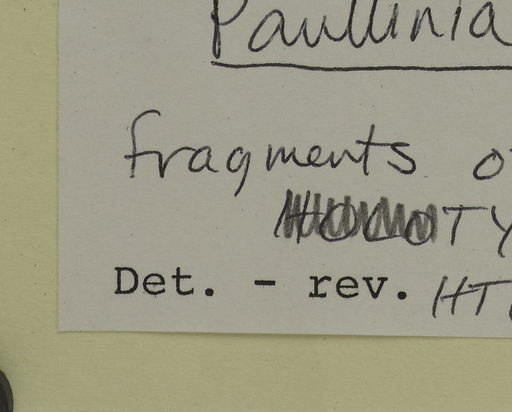 Paullinia
fragments
Det. - rev. HT